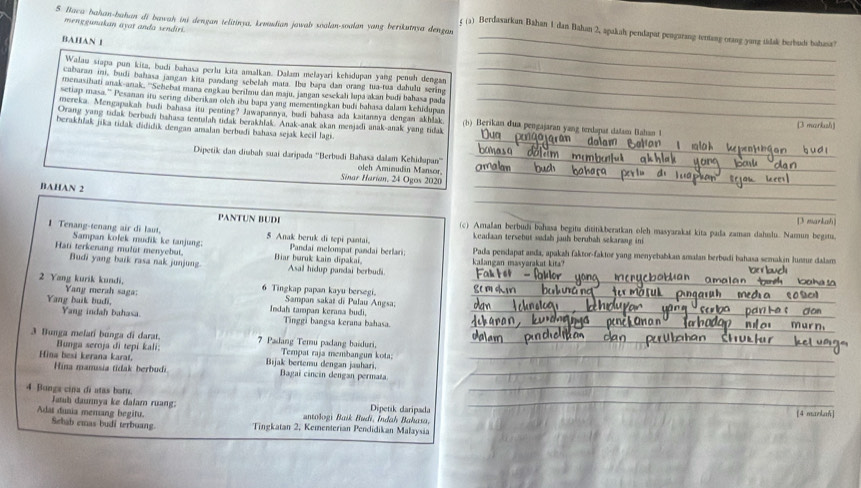 5 Baca bahan-bahan di bawah ini dengan telitinya, kemudian jawab soalan-soalan yang berikutnya dengan
menggunakan ayat anda sendiri.
BAHAN 1
Walau siapa pun kita, budi bahasa perlu kita amalkan. Dalam melayari kehidupan yang penuh dengan
cabaran ini, budi bahasa jangan kita pandang sebelah mata. Ibu bapa dan orang tua-tua dahulu sering
menasihati anak-anak, "Sehebat mana engkau berilmu dan maju, jangan sesekali lupa akan budi bahasa pada
setiap masa." Pesanan itu sering diberikan oleh ibu bapa yang mementingkan budi bahasa dalam kehidupan
mereka. Mengapakah budi bahasa itu penting? Jawapannya, budi bahasa ada kaitannya dengan akhlak.
Orang yang tidak berbudi bahasa tentulah tidak berakhlak. Anak-anak akan menjadi anak-anak yang tidak
berakhlak jika tidak dididik dengan amalan berbudi bahasa sejak kecil lagi.
Dipetik dan diubah suai daripada "Berbudi Bahasa dalam Kehidupan"
oleh Aminudin Mansor,
Sinar Harian, 24 Ogos 2020
BAHAN 2
PANTUN BUDI
1 Tenang-tenang air di laut,
Sampan kolek mudik ke tanjung;
Hati terkenang mulut menyebut,
Budi yang baik rasa nak junjung.
2 Yang kurik kundi,
Yang merah saga;
Yang baik budi,
Yang indah bahasa.
3 Bunga melati bunga di darat,
Bunga seroja di tepi kali;
Hina besi kerana karat,
Hina manusia tidak berbudi.
4 Bunga cina di atas batu,
Jatuh daunnya ke dalam ruang;
Adat dunia memang begitu,
Sebab emas budi terbuang.
5 Anak beruk di tepi pantai,
Pandai melompat pandai berlari;
Biar buruk kain dipakai,
Asal hidup pandai berbudi.
6 Tingkap papan kayu bersegi,
Sampan sakat di Pulau Angsa;
Indah tampan kerana budi,
Tinggi bangsa kerana bahasa.
7 Padang Temu padang baiduri,
Tempat raja membangun kota;
Bijak bertemu dengan jauhari,
Bagai cincin dengan permata.
Dipetik daripada
antologi Baik Budi, Indah Bahasa,
Tingkatan 2, Kementerian Pendidikan Malaysia
5 (a) Berdasarkan Bahan 1 dan Bahan 2, apakah pendapat pengarang tentang orang yang tidak berbudi bahasa?
[3 markah]
(b) Berikan dua pengajaran yang terdapat dalam Bahan 1.
Dua pengajaran dalam Bahan 1 ialah kepentingan budi
bahasa dalam membentuk akhlak yang baik dan
amalan budi bahasa perlu di terapkan sejak kecil
[3 markah]
(c) Amalan berbudi bahasa begitu dititikberatkan oleh masyarakat kita pada zaman dahulu. Namun begitu,
keadaan tersebut sudah jauh berubah sekarang ini.
Pada pendapat anda, apakah faktor-faktor yang menyebabkan amalan berbudi bahasa semakin luntur dalam
kalangan masyarakat kita?
berbudi
Faktor - faktor yong menyebabkan amalan bahasa
semakin termasuk pengaruh media sosial
dan teknologi, kehidupan yang serba pantas dan
tekanan, kurangnya penekanan terhadap nilai murni
dalam pendidikan dan perubahan struktur keluarga
[4 markah]